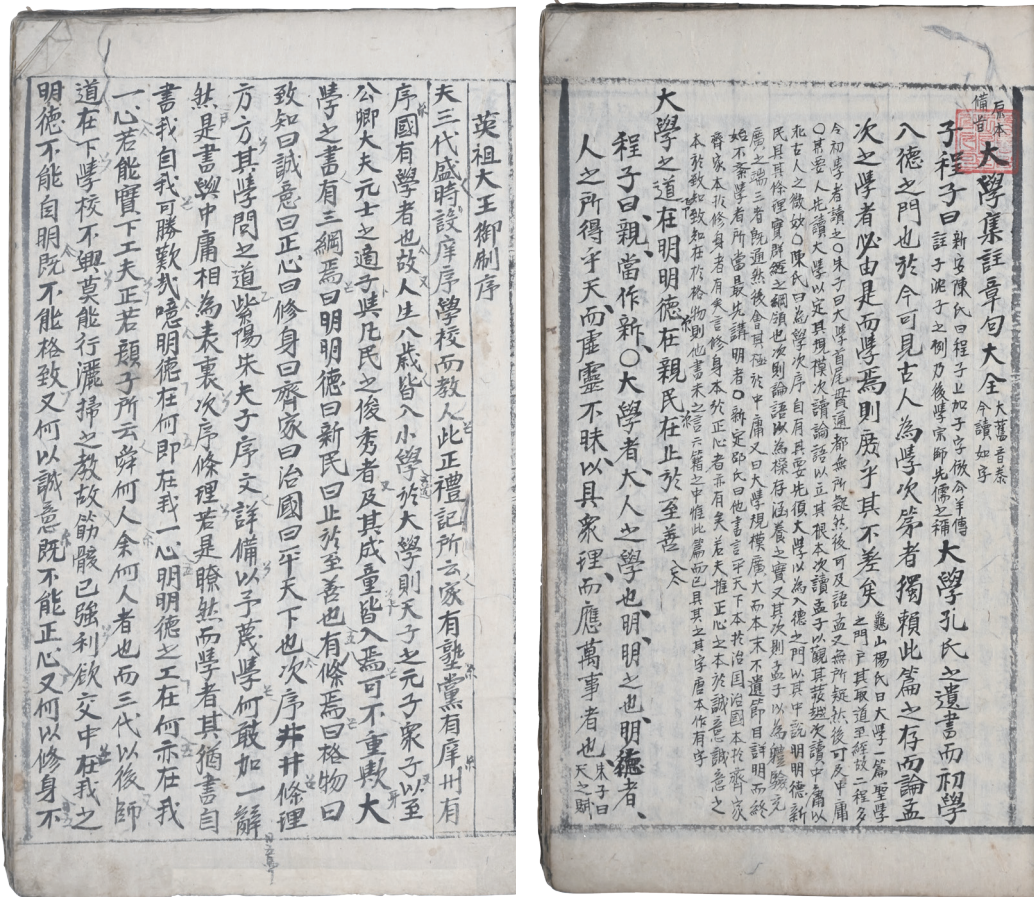 原本備旨大學集註章句大全大舊音泰今讀如字
子程子曰新安陳氏曰程子上加子字倣公羊傳註子沈子之例乃後學宗師先儒之稱大學孔氏之遺書而初學
入德之門也於今可見古人為學次第者獨賴此篇之存而論孟
次之學者必由是而學焉則庶乎其不差矣龜山楊氏曰大學一篇聖學之門戶其取道至經故二程多
令初學者讀之○朱子曰大學首尾貫通都無所疑然後可及語孟又無所疑然後可及中庸
○某要人先讀大學以定其規模次讀論語以立其根本次讀孟子以觀其發越次讀中庸以
求古人之微妙○陳氏曰為學次序自有其要先須大學以為入德之門以其中說明明德新
民具其條理實群經之綱領也次則論語以為操存涵養之實又其次則孟子以為體驗充
廣之端三者既通然後會其極於中庸又曰大學規模廣大而本末不遺節目詳明而終
始不紊學者所當最先講明者○新定邵氏曰他書言平天下本於治国治國本於齊家
齊家本於修身者有矣言修身本於正心者亦有矣若夫推正心之本於誠意誠意之
本於致知致知在於格物則他書未之言六籍之中惟此篇而已具其之其字唐本作有字
大學之道在明明德在親民在止於至善
程子曰親當作新○大學者大人之學也明明之也明德者
人之所得乎天而虛靈不昧以具衆理而應萬事者也朱子曰天之賦
英祖大王御制序
夫三代盛時設庠序學校而教人此正禮記所云家有塾黨有庠州有
序國有學者也故人生八歲皆入小學於大學則天子之元子衆子以至
公卿大夫元士之適子與凡民之俊秀者及其成童皆入焉可不重歟大
學之書有三綱焉曰明明德曰新民曰止於至善也有條焉曰格物曰
致知曰誠意曰正心曰修身曰齊家曰治國曰平天下也次序井井條理
方方其學問之道紫陽朱夫子序文詳備以予蔑學何敢加一辭
然是書與中庸相為表裏次序條理若是瞭然而學者其猶書自
書我自我可勝歎哉噫明德在何即在我一心明明德之工在何亦在我
一心若能實下工夫正若顔子所云舜何人余何人者也而三代以後師
道在下學校不興莫能行灑掃之教故筋骸已強利欲交中在我之
明德不能自明既不能格致又何以誠意既不能正心又何以修身不